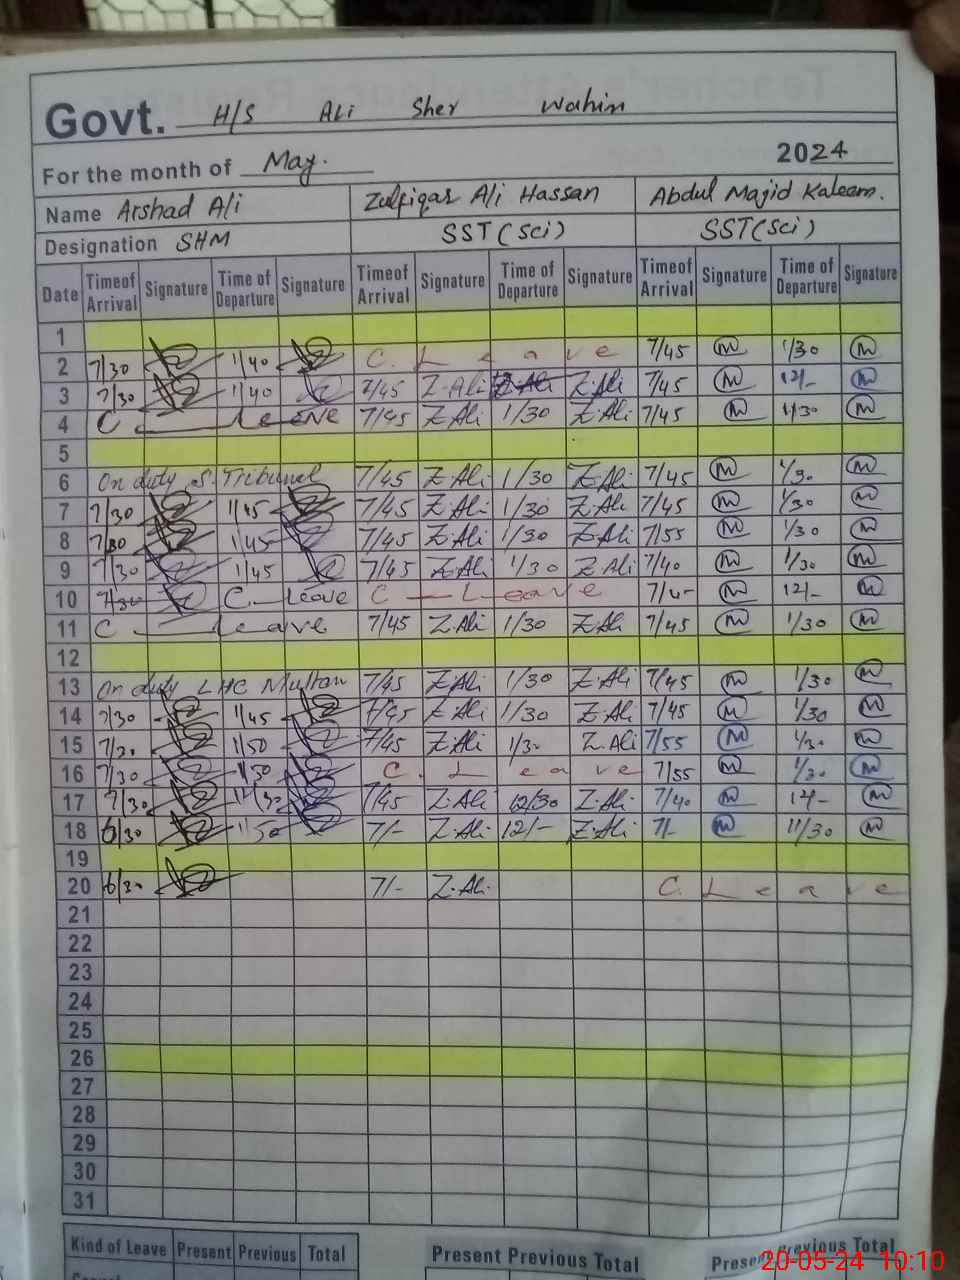 Govt. H/S Ali Sher Wahin
For the month of May. 2024
Name Arshad Ali Zulfiqar Ali Hassan Abdul Majid Kaleem.
Designation SHM SST (Sci) SST (Sci)
Date Timeof Arrival Signature Time of Departure Signature Timeof Arrival Signature Time of Departure Signature Timeof Arrival Signature Time of Departure Signature
1
2 7/30 1/40 C. Leave 7/45 M 1/30 M
3 7/30 1/40 7/45 Z.Ali Z.Ali Z.Ali 7/45 M 12/- M
4 C Leave 7/45 Z.Ali 1/30 Z.Ali 7/45 M 1/30 M
5
6 On duty S. Tribunal 7/45 Z.Ali 1/30 Z.Ali 7/45 M 1/30 M
7 7/30 1/45 7/45 Z.Ali 1/30 Z.Ali 7/45 M 1/30 M
8 7/30 1/45 7/45 Z.Ali 1/30 Z.Ali 7/55 M 1/30 M
9 7/30 1/45 7/45 Z.Ali 1/30 Z.Ali 7/40 M 1/30 M
10 7/30 C. Leave C - Leave M 12/- M
11 C Leave 7/45 Z.Ali 1/30 Z.Ali 7/45 M 1/30 M
12
13 On duty LHC Multan 7/45 Z.Ali 1/30 Z.Ali 7/45 M 1/30 M
14 7/30 1/45 7/45 Z.Ali 1/30 Z.Ali 7/45 M 1/30 M
15 7/30 1/50 7/45 Z.Ali 1/30 Z.Ali 7/55 M 1/30 M
16 7/30 1/30 C. Leave 7/55 M 1/30 M
17 7/30 7/45 Z.Ali 12/30 Z.Ali 7/40 M 12/- M
18 6/30 1/50 7/- Z.Ali 12/- Z.Ali 7/- M 11/30 M
19
20 6/30 7/- Z.Ali. C. Leave
21
22
23
24
25
26
27
28
29
30
31
Kind of Leave Present Previous Total Present Previous Total Present Previous Total
20-05-24 10:10